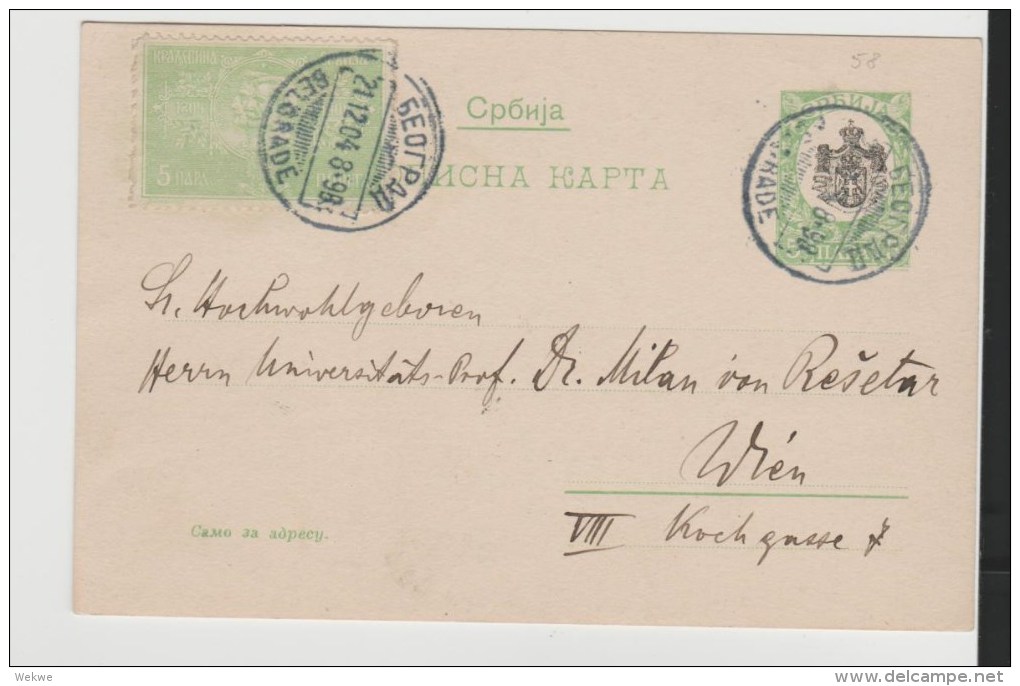 58
КРАЉЕВИНА
5 ПАРА
БЕОГРАД
21.12.04 8-9В
BELGRADE
Србија
ИСНА КАРТА
СРБИЈА
БЕОГРАД
8-9В
Sr. Hochwohlgeboren
Herrn Universitäts-Prof. Dr. Milan von Rešetar
Wien
VIII Kochgasse
Само за адресу.
Wekwe
www.delcampe.net